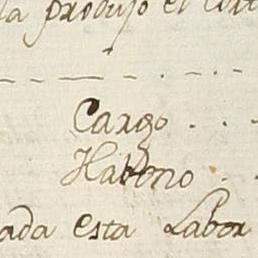 la produjo el Cort
Cargo . . .
Habono . .
ada esta Labor